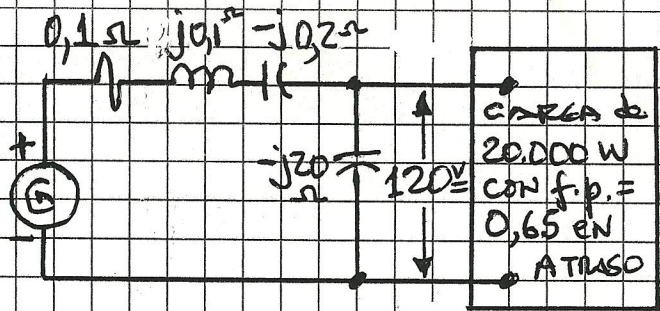 0,1Ω j0,1Ω -j0,2Ω
+
G
-
-j20
Ω
120V
CARGA de
20.000 W
CON f.p.=
0,65 EN
ATRASO